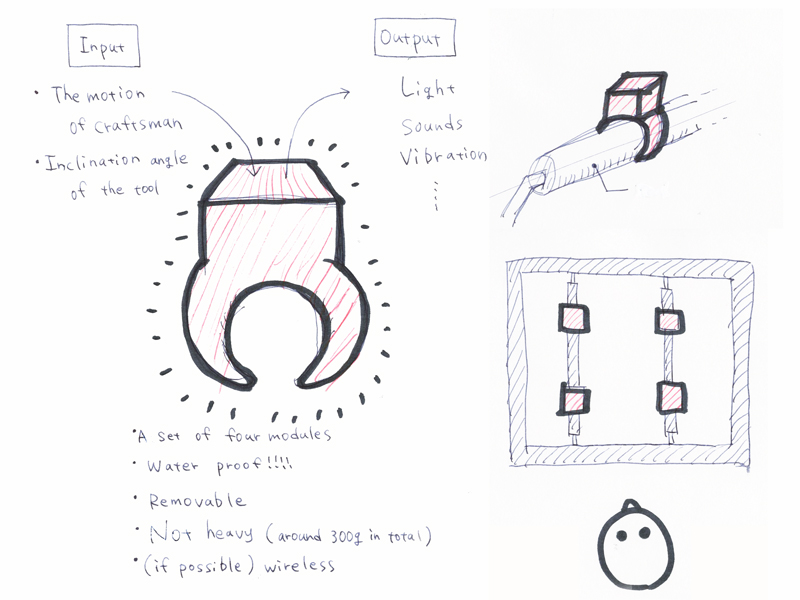 Input
• The motion
of Craftsman
• Inclination angle
of the tool
Output
Light
Sounds
Vibration
• A set of four modules
• Water proof!!!!
• Removable
• Not heavy (around 300g in total)
• (if possible) wireless